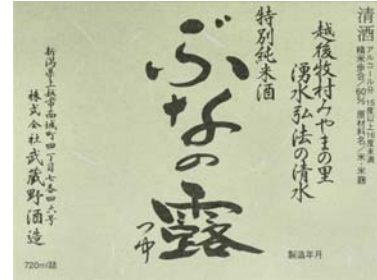 清酒
アルコール分 15度以上16度未満
精米歩合/60% 原材料名/米・米麹
越後牧村みやまの里
湧水弘法の清水
特別純米酒
ぶなの露
つゆ
製造年月
新潟県上越市西城町四丁目七番四六号
株式会社武蔵野酒造
720ml詰